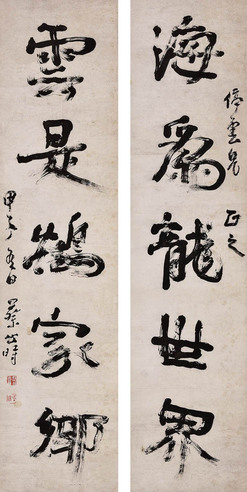 海為龍世界
雲兄 正之
雲是鶴家鄉
甲子 日 蔡公時